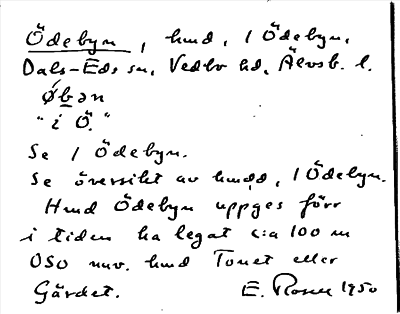 Ödebyn, hmd, 1 Ödebyn,
Dals-Eds sn, Vedbo hd, Älvsb. l.
Øbən
"i Ö."
Se 1 Ödebyn.
Se översikt av hmdd, 1 Ödebyn.
Hmd Ödebyn uppges förr
i tiden ha legat c:a 100 m
OSO nuv. hmd Tomet eller
Gärdet. E. Rosell 1950